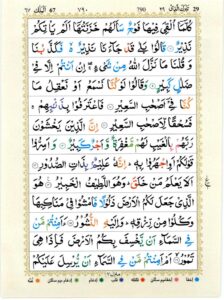 تَبٰرَكَ الَّذِىْ ٢٩ ٧٩٠ 790 67 اَلْمُلْك ٦٧ 29
كُلَّمَاۤ اُلْقِىَ فِيْهَا فَوْجٌ سَاَلَهُمْ خَزَنَتُهَاۤ اَلَمْ يَاْتِكُمْ
نَذِيْرٌ ۝ قَالُوْا بَلٰى قَدْ جَآءَنَا نَذِيْرٌ ۙ فَكَذَّبْنَا
وَقُلْنَا مَا نَزَّلَ اللّٰهُ مِنْ شَىْءٍ ۖ اِنْ اَنْتُمْ اِلَّا فِىْ
ضَلٰلٍ كَبِيْرٍ ۝ وَقَالُوْا لَوْ كُنَّا نَسْمَعُ اَوْ نَعْقِلُ مَا
كُنَّا فِىْۤ اَصْحٰبِ السَّعِيْرِ ۝ فَاعْتَرَفُوْا بِذَنْۢبِهِمْ ۚ
فَسُحْقًا لِّاَصْحٰبِ السَّعِيْرِ ۝ اِنَّ الَّذِيْنَ يَخْشَوْنَ
رَبَّهُمْ بِالْغَيْبِ لَهُمْ مَّغْفِرَةٌ وَّاَجْرٌ كَبِيْرٌ ۝ وَاَسِرُّوْا
قَوْلَكُمْ اَوِ اجْهَرُوْا بِهٖ ؕ اِنَّهٗ عَلِيْمٌۢ بِذَاتِ الصُّدُوْرِ ۝
اَلَا يَعْلَمُ مَنْ خَلَقَ ؕ وَهُوَ اللَّطِيْفُ الْخَبِيْرُ ۝ هُوَ
الَّذِىْ جَعَلَ لَكُمُ الْاَرْضَ ذَلُوْلًا فَامْشُوْا فِىْ مَنَاكِبِهَا
وَكُلُوْا مِنْ رِّزْقِهٖ ؕ وَاِلَيْهِ النُّشُوْرُ ۝ ءَاَمِنْتُمْ مَّنْ
فِى السَّمَآءِ اَنْ يَّخْسِفَ بِكُمُ الْاَرْضَ فَاِذَا هِىَ
تَمُوْرُ ۝ اَمْ اَمِنْتُمْ مَّنْ فِى السَّمَآءِ اَنْ يُّرْسِلَ عَلَيْكُمْ